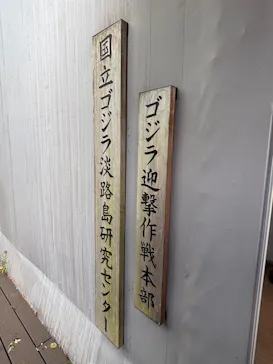 国立ゴジラ淡路島研究センター
ゴジラ迎撃作戦本部